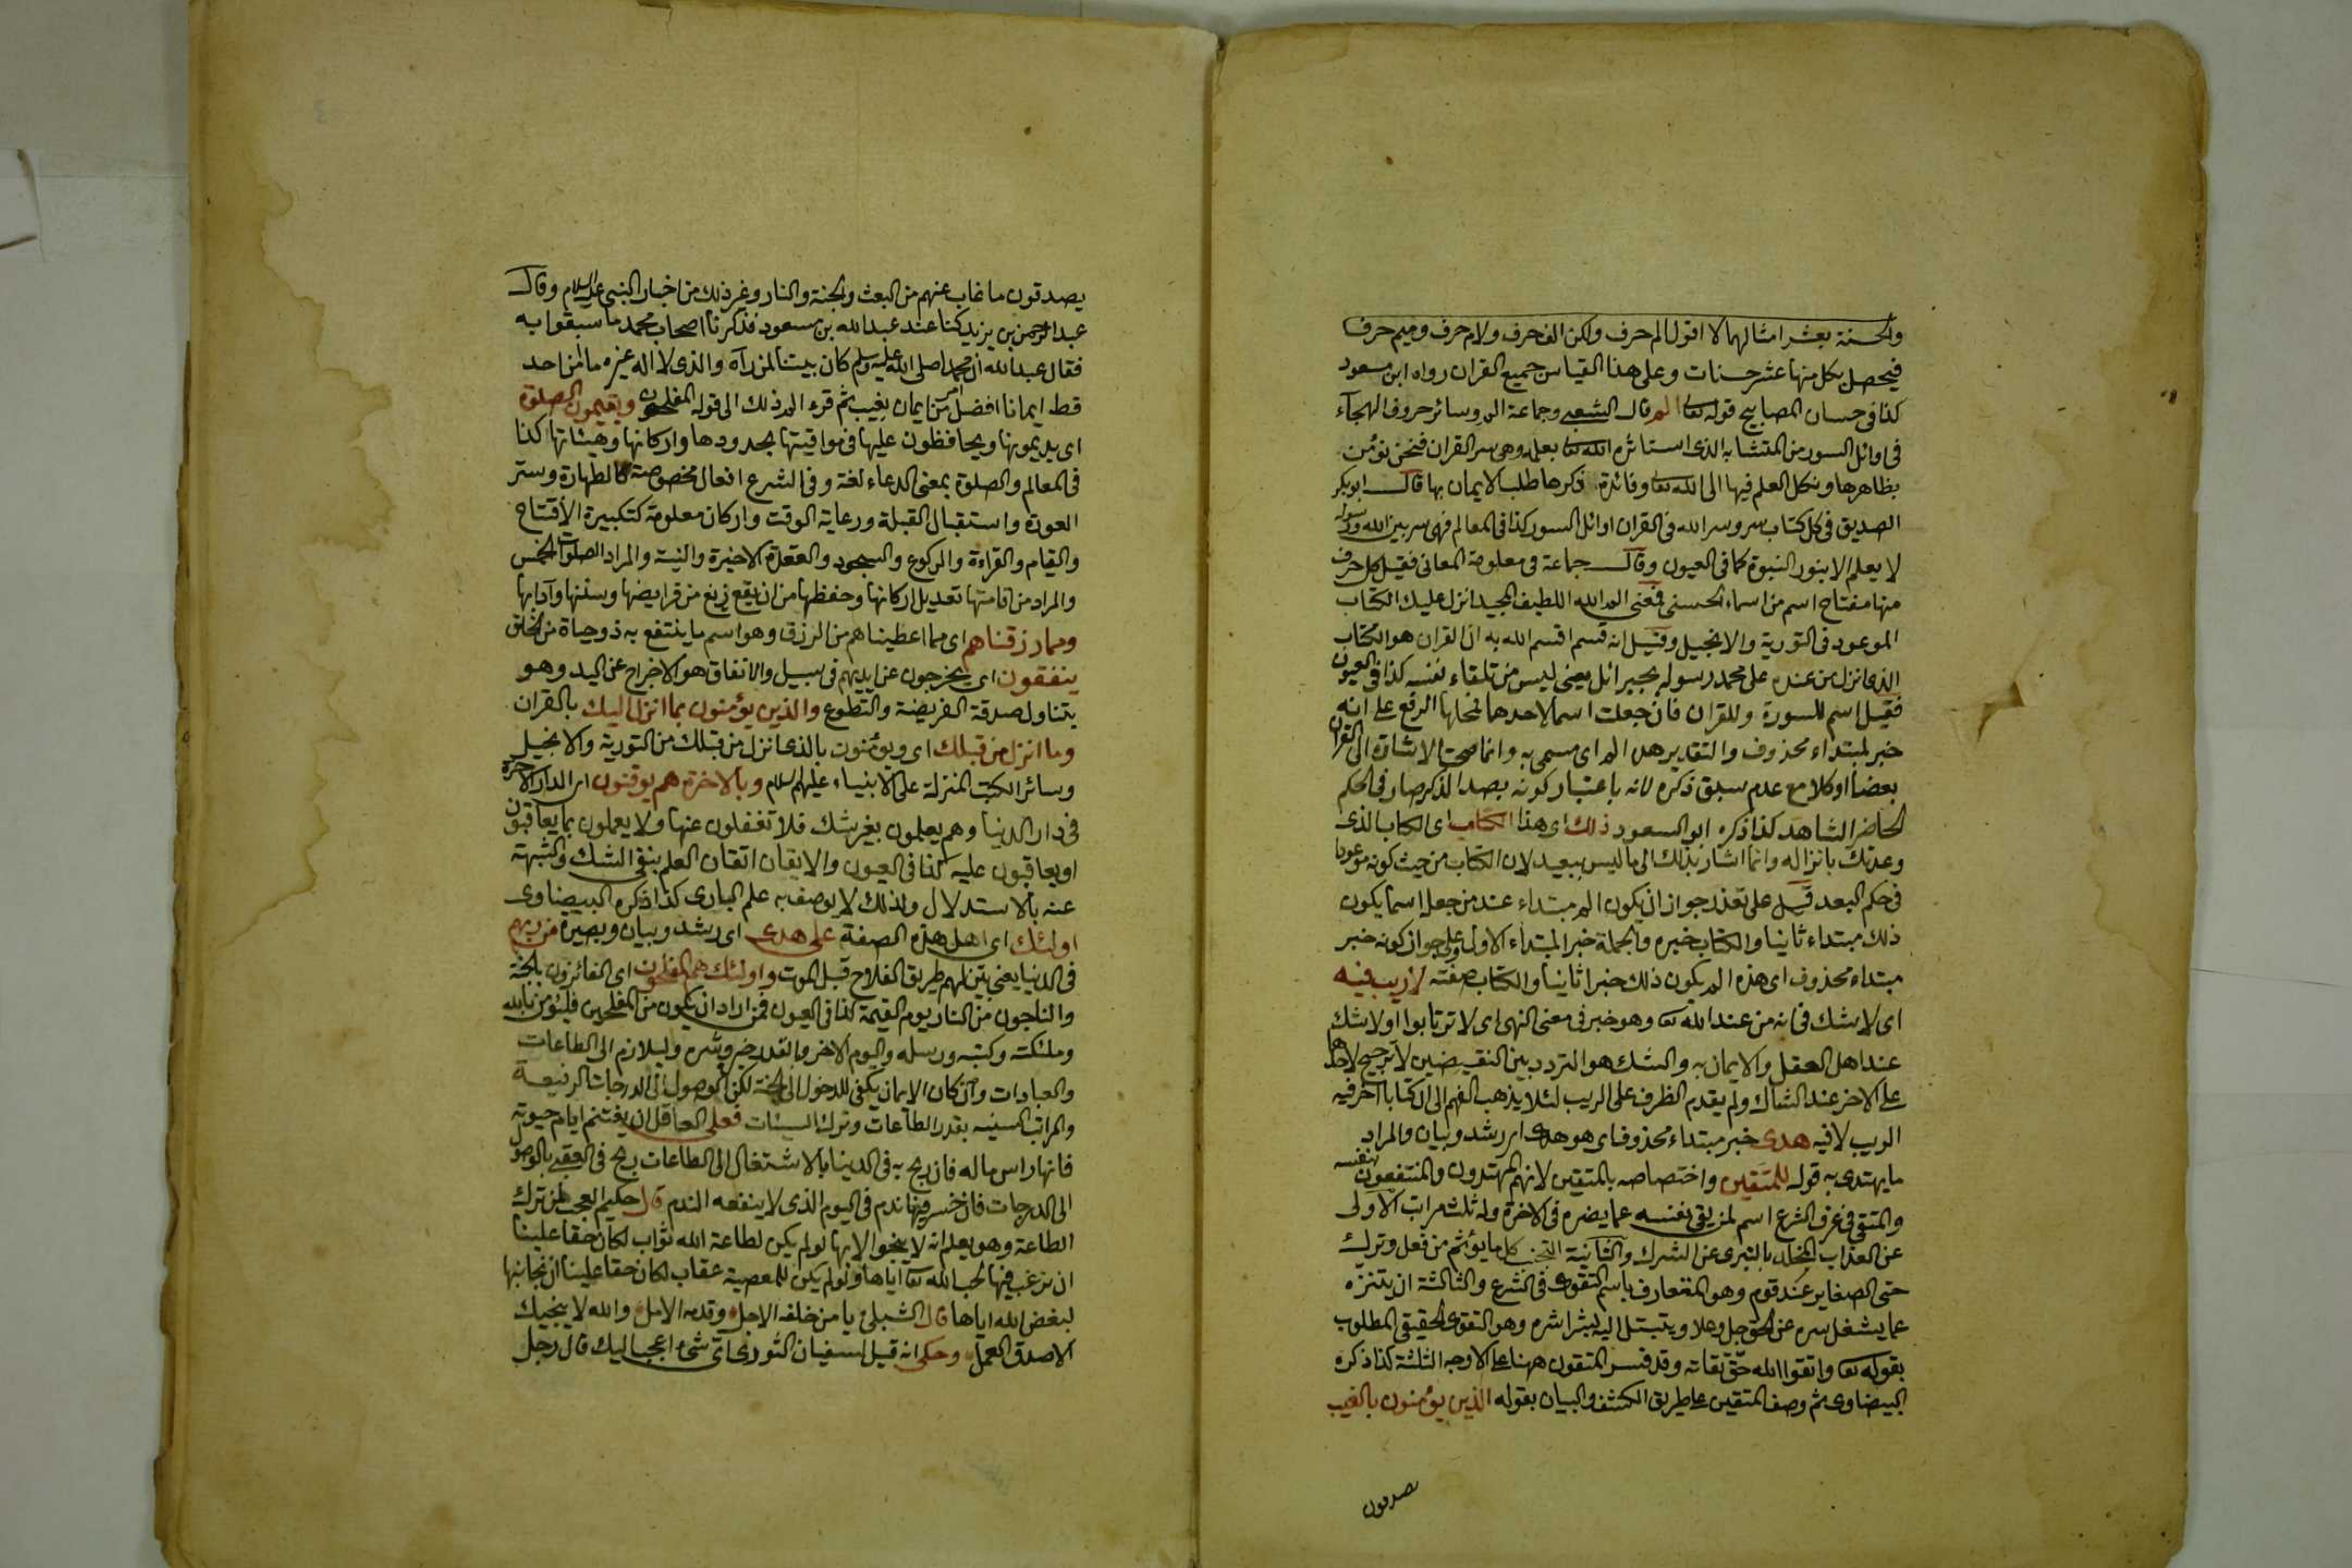 والحسنة بعشر امثالها لا اقول الم حرف ولكن الف حرف ولام حرف وميم حرف
فيحصل بكل منها عشر حسنات وعلى هذا القياس جميع القران رواه ابن مسعود
كذا فى حسان المصابيح قوله تعا الم قال الشعبى وجماعة الم وسائر حروف الهجآء
فى اوائل السور من المتشابه الذى استأثره الله تعا بعلمه وهى سر القران فنحن نؤمن
بظاهرها ونكل العلم فيها الى الله تعا وفائدة ذكرها طلب الايمان بها قال ابو بكر
الصديق فى كل كتاب سر وسر الله فى القران اوائل السور كذا فى المعالم فهى سر بين الله ورسوله
لا يعلم الا بنور النبوة كما فى العيون وقال جماعة هى معلومة المعانى فقيل كل حرف
منها مفتاح اسم من اسماء الحسنى فمعنى الم الله اللطيف المجيد انزل عليك الكتاب
الموعود فى التورية والانجيل وقيل انه قسم اقسم الله به ان القران هو الكتاب
الذى انزل من عنده على محمد رسوله بجبرائل يعنى ليس من تلقاء نفسه كذا فى العيون
فقيل اسم للسورة وللقران فان جعلت اسما لاحدهما فمحلها الرفع على انه
خبر لمبتداء محذوف والتقدير هذا الم اى مسمى به وانما صحت الاشارة الى القران
بعضا او كلا مع عدم سبق ذكره لانه باعتبار كونه بصدد الذكر صار فى الحكم
الحاضر الشاهد كذا ذكره ابو السعود ذلك اى هذا الكتاب اى الكتاب الذى
وعدتك بانزاله وانما اشار بذلك الى ما ليس ببعيد لان الكتاب من حيث كونه موعودا
فى حكم البعد قيل على تقدير جواز ان يكون الم مبتداء عند من جعل اسما يكون
ذلك مبتداء ثانيا والكتاب خبره والجملة خبر المبتداء الاول وعلى جواز كونه خبر
مبتداء محذوف اى هذه الم يكون ذلك خبرا ثانيا والكتاب صفته لا ريب فيه
اى لا شك فى انه من عند الله تعا وهو خبر فى معنى النهى اى لا ترتابوا او لا شك
عند اهل العقل والايمان به والشك هو التردد بين النقيضين لا ترجيح لاحدها
على الاخر عند الشاك ولم يقدم الظرف على الريب لئلا يذهب الفهم الى ان كتابا آخر فيه
الريب لا فيه هدى خبر مبتداء محذوف اى هو هدى اى رشد وبيان والمراد
ما يهتدى به قوله للمتقين واختصاصه بالمتقين لانهم المهتدون والمنتفعون
والمتقى فى عرف الشرع اسم لمن يقى نفسه عما يضره فى الاخرة وله ثلث مراتب الاولى
عن العذاب المخلد بالتبرى عن الشرك والثانية التجنب كل ما يؤثم من فعل وترك
حتى الصغاير عند قوم وهو المتعارف باسم التقوى فى الشرع والثالثة ان يتنزه
عما يشغل سره عن الحق جل وعلا ويتبتل اليه بشراشره وهو التقوى الحقيقى المطلوب
بقوله تعا واتقوا الله حق تقاته وقد فسر المتقون ههنا على الاوجه الثلثة كذا ذكره
البيضاوى ثم وصف المتقين على طريق الكشف والبيان بقوله الذين يؤمنون بالغيب
يصدقون
يصدقون ما غاب عنهم من البعث والجنة والنار وغير ذلك من اخبار النبى عليه السلام وقال
عبد الرحمن بن يزيد كنا عند عبد الله بن مسعود فذكرنا اصحاب محمد ما سبقوا به
فقال عبد الله ان محمدا صلى الله عليه وسلم كان بيننا لمن رآه والذى لا اله غيره ما امن احد
قط ايمانا افضل من ايمان بغيب ثم قرء الم ذلك الى قوله المفلحون ويقيمون الصلوة
اى يديمونها ويحافظون عليها فى مواقيتها بحدودها واركانها وهيئاتها كذا
فى المعالم والصلوة بمعنى الدعاء لغة وفى الشرع افعال مخصوصة كالطهارة وستر
العورة واستقبال القبلة ورعاية الوقت واركان معلومة كتكبيرة الافتتاح
والقيام والقراءة والركوع والسجود والقعدة الاخيرة والنية والمراد الصلوات الخمس
والمراد من اقامتها تعديل اركانها وحفظها من ان يقع زيغ من فرايضها وسننها وآدابها
ومما رزقناهم اى مما اعطيناهم من الرزق وهو اسم ما ينتفع به ذو حياة من الخلق
ينفقون اى يخرجون عن ايديهم فى سبيل والانفاق هو الاخراج عن اليد وهو
يتناول صدقة الفريضة والتطوع والذين يؤمنون بما انزل اليك بالقران
وما انزل من قبلك اى ويؤمنون بالذى انزل من قبلك من التورية والانجيل
وسائر الكتب المنزلة على الانبياء عليهم السلام وبالاخرة هم يوقنون اى الدار الاخرة
فى دار الدنيا وهم يعلمون بغير شك فلا تغفلون عنها ولا يعملون بما يعاقبون
او يعاقبون عليه كذا فى العيون والايقان اتقان العلم بنفى الشك والشبهة
عنه بالاستدلال ولذلك لا يوصف به علم البارى كذا ذكره البيضاوى
اولئك اى اهل هذه الصفة على هدى اى رشد وبيان وبصيرة من ربهم
فى الدنيا يعنى بين لهم طريق الفلاح قبل الموت واولئك هم المفلحون اى الفائزون بالجنة
والناجون من النار يوم القيمة كذا فى العيون فمن اراد ان يكون من المفلحين فليؤمن بالله
وملئكته وكتبه ورسله واليوم الاخر وبالقدر خيره وشره وليلازم الى الطاعات
والعبادات وان كان الايمان يكفى للدخول الى الجنة لكن الوصول الى الدرجات الرفيعة
والمراتب السنيه بقدر الطاعات وترك السيئات فعلى العاقل ان يغتنم ايام حيوته
فانها راس ماله فان ربح به فى الدنيا بالاشتغال الى الطاعات ربح فى العقبى بالوصول
الى الدرجات فان خسر فيها ندم فى اليوم الذى لا ينفعه الندم قال حكيم العجب لمن ترك
الطاعة وهو يعلم انه لا ينجوا الا بها لو لم يكن لطاعة الله ثواب لكان حقا علينا
ان نرغب فيها لحب الله تعا اياها ولو لم يكن للمعصية عقاب لكان حقا علينا ان نجانبها
لبغض الله اياها قال الشبلى يا من خلفه الاجل وقدمه الامل والله لا ينجيك
الا صدق العمل وحكى انه قيل لسفيان الثورى اى شئ اعجب اليك قال رجل